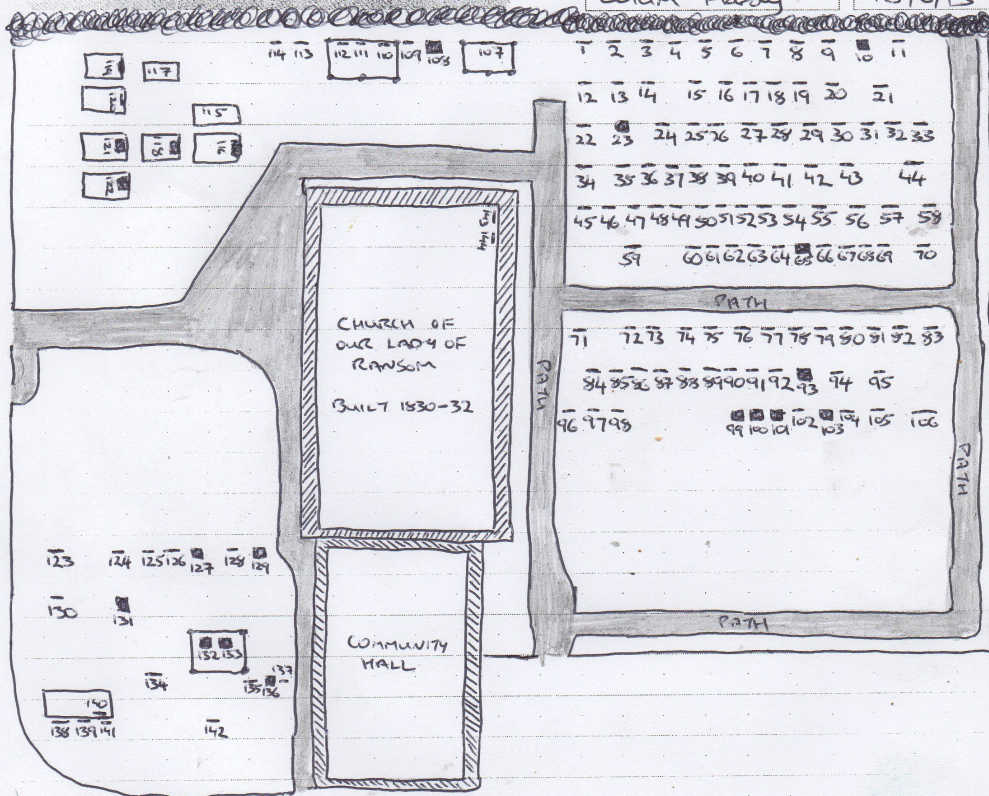 114 113 112 111 110 109 108 107
1 2 3 4 5 6 7 8 9 10 11
12 13 14 15 16 17 18 19 20 21
22 23 24 25 26 27 28 29 30 31 32 33
34 35 36 37 38 39 40 41 42 43 44
45 46 47 48 49 50 51 52 53 54 55 56 57 58
59 60 61 62 63 64 65 66 67 68 69 70
PATH
71 72 73 74 75 76 77 78 79 80 81 82 83
84 85 86 87 88 89 90 91 92 93 94 95
96 97 98 99 100 101 102 103 104 105 106
PATH
PATH
PATH
117
115
121 118 116
122
143 144
CHURCH OF
OUR LADY OF
RANSOM
BUILT 1830-32
COMMUNITY
HALL
123 124 125 126 127 128 129
130 131
132 133
134 135 136 137
140
138 139 141 142